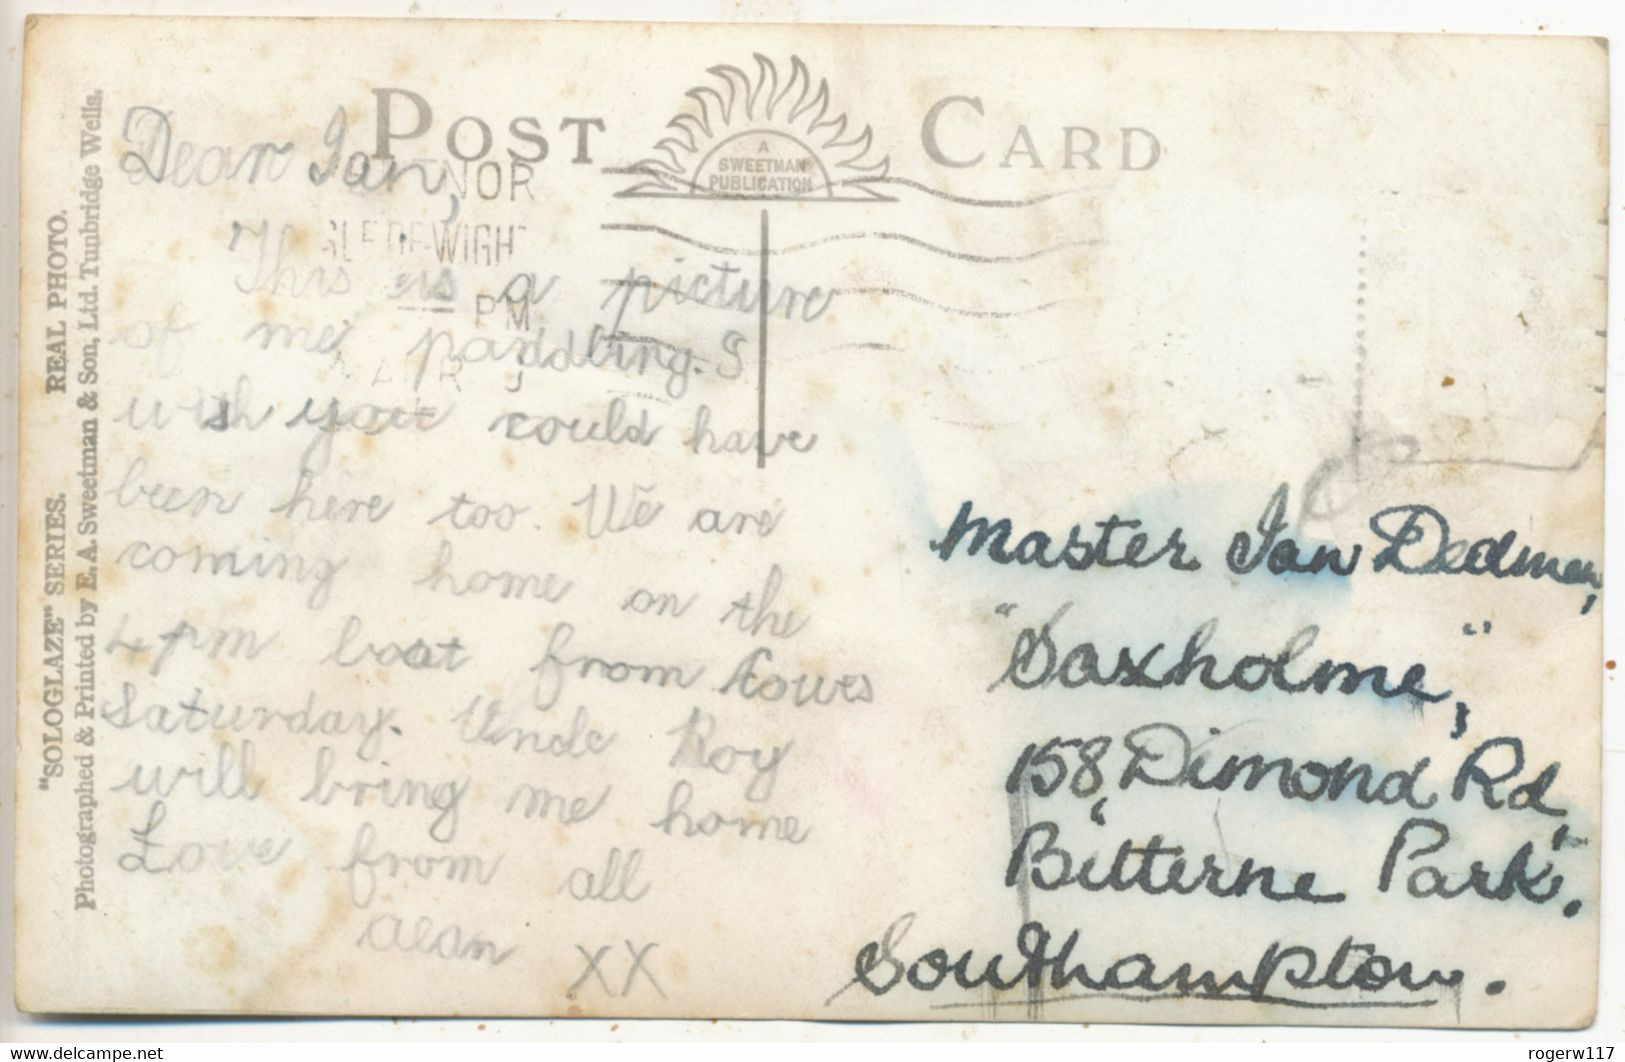 POST CARD
A
SWEETMAN
PUBLICATION
"SOLOGLAZE" SERIES. REAL PHOTO.
Photographed & Printed by E. A. Sweetman & Son, Ltd. Tunbridge Wells.
NOR
WIGHT
PM
Dear Ian,
This is a picture
of me paddling. I
wish you could have
been here too. We are
coming home on the
4 pm boat from Cowes
Saturday. Uncle Roy
will bring me home
Love from all
Alan XX
Master Ian Dedman,
"Saxholme",
158, Dimond Rd,
Bitterne Park.
Southampton.
delcampe.net
rogerw117